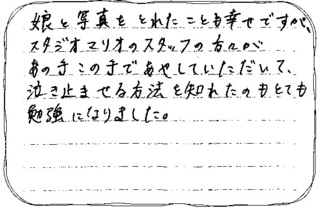 娘と写真をとれたことも幸せですが、
スタジオマリオのスタッフの方々が
あの手この手であやしていただいて、
泣き止ませる方法を知れたのもとても
勉強になりました。